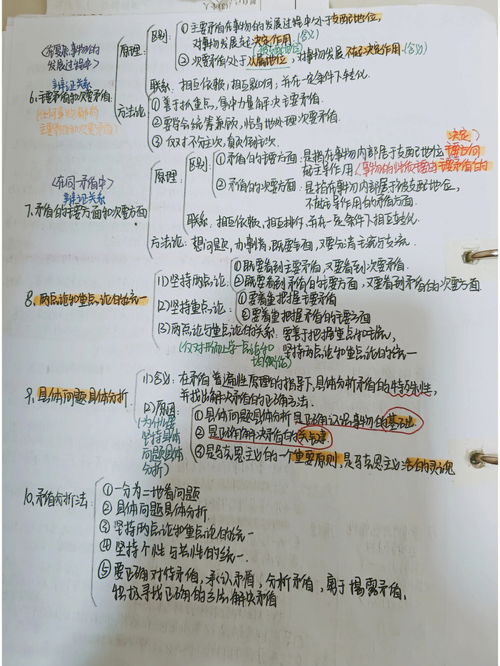 ① 主要矛盾在事物的发展过程中处于支配地位,
对事物发展起决定作用。(含义)
② 次要矛盾处于从属地位,对事物发展不起决定作用。(含义)
区别:
原理:
联系:相互依赖,相互影响,并在一定条件下转化。
辩证关系
发展过程中)
6. 主要矛盾和次要矛盾
方法论:
① 善于抓重点,集中力量解决主要矛盾。
② 要学会统筹兼顾,恰当地处理次要矛盾。
(在同一矛盾中)
辩证关系
7. 矛盾的主要方面和次要方面
原理:
区别:
① 矛盾的主要方面:是指在事物内部居于支配地位
起主导作用
② 矛盾的次要方面:是指在事物内部居于被支配地位,
不起主导作用的矛盾方面。
联系:相互依赖,相互排斥,并在一定条件下相互转化。
方法论:想问题,办事情,既要全面,又要分清主流与支流。
8. 两点论和重点论的统一
(1) 坚持两点论:
① 既要看到主要矛盾,又要看到次要矛盾
② 既要看到矛盾的主要方面,又要看到矛盾的次要方面
(2) 坚持重点论:
① 要着重把握主要矛盾
② 要着重把握矛盾的主要方面
(3) 两点论与重点论的关系:要善于把握重点和主流,
坚持两点论和重点论的统一
9. 具体问题具体分析
(1) 含义:在矛盾普遍性原理的指导下,具体分析矛盾的特殊性,
并找出解决矛盾的正确方法。
(2) 原理:
(为什么要
坚持具体
问题具体
分析)
① 具体问题具体分析是正确认识事物的基础
② 是正确解决矛盾的关键
③ 是马克思主义的一个重要原则,是马克思主义活的灵魂
10. 矛盾分析法:
① 一分为二地看问题
② 具体问题具体分析
③ 坚持两点论和重点论的统一
④ 坚持个性与共性的统一.
⑤ 要正确对待矛盾,承认矛盾,分析矛盾,勇于揭露矛盾,
积极寻找正确的方法解决矛盾